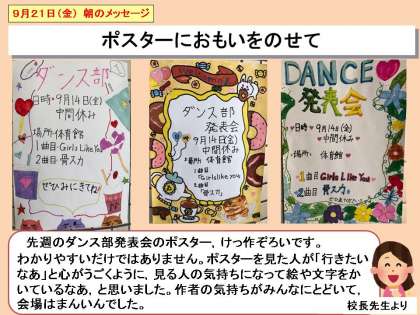 9月21日(金) 朝のメッセージ
ポスターにおもいをのせて
ダンス部
日時・9月14日(金)
中間休み
場所・体育館
1曲目 Girls Like You
2曲目 骨スカ
ぜひみにきてね!
ダンス部
発表会
9月14日(金)
中間休み
場所 体育館
1曲目
「Girls like you
2曲目
「骨スカ」
DANCE
発表会
9月14日(金)
中間休み
場所・体育館
1曲目 Girls Like You
2曲目 骨スカ
先週のダンス部発表会のポスター,けっ作ぞろいです。
わかりやすいだけではありません。ポスターを見た人が「行きたい
なあ」と心がうごくように,見る人の気持ちになって絵や文字をか
いているなあ,と思いました。作者の気持ちがみんなにとどいて,
会場はまんいんでした。
校長先生より